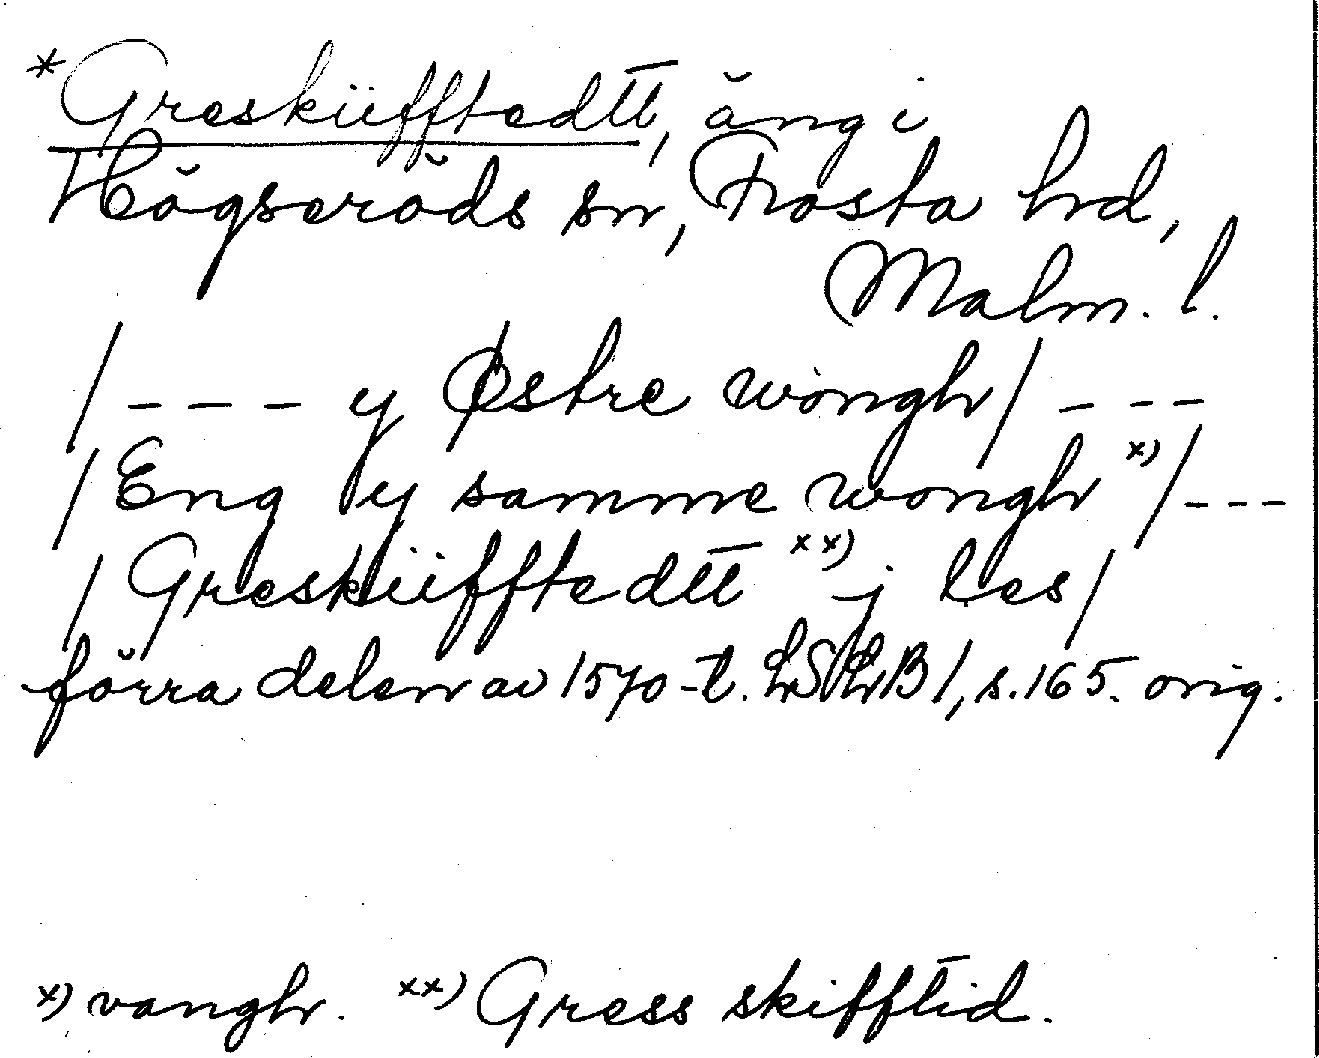 *Gresküfftedtt, äng i
Högseröds sn, Frosta hd,
Malm. l.
/--- y Østre wongh/ ---
/Eng y samme wongh x)/---
/Gresküfftedtt xx) j les/
förra delen av 1570-t. LSLB 1, s. 165. orig.
x) vangh. xx) Gress skifftid.